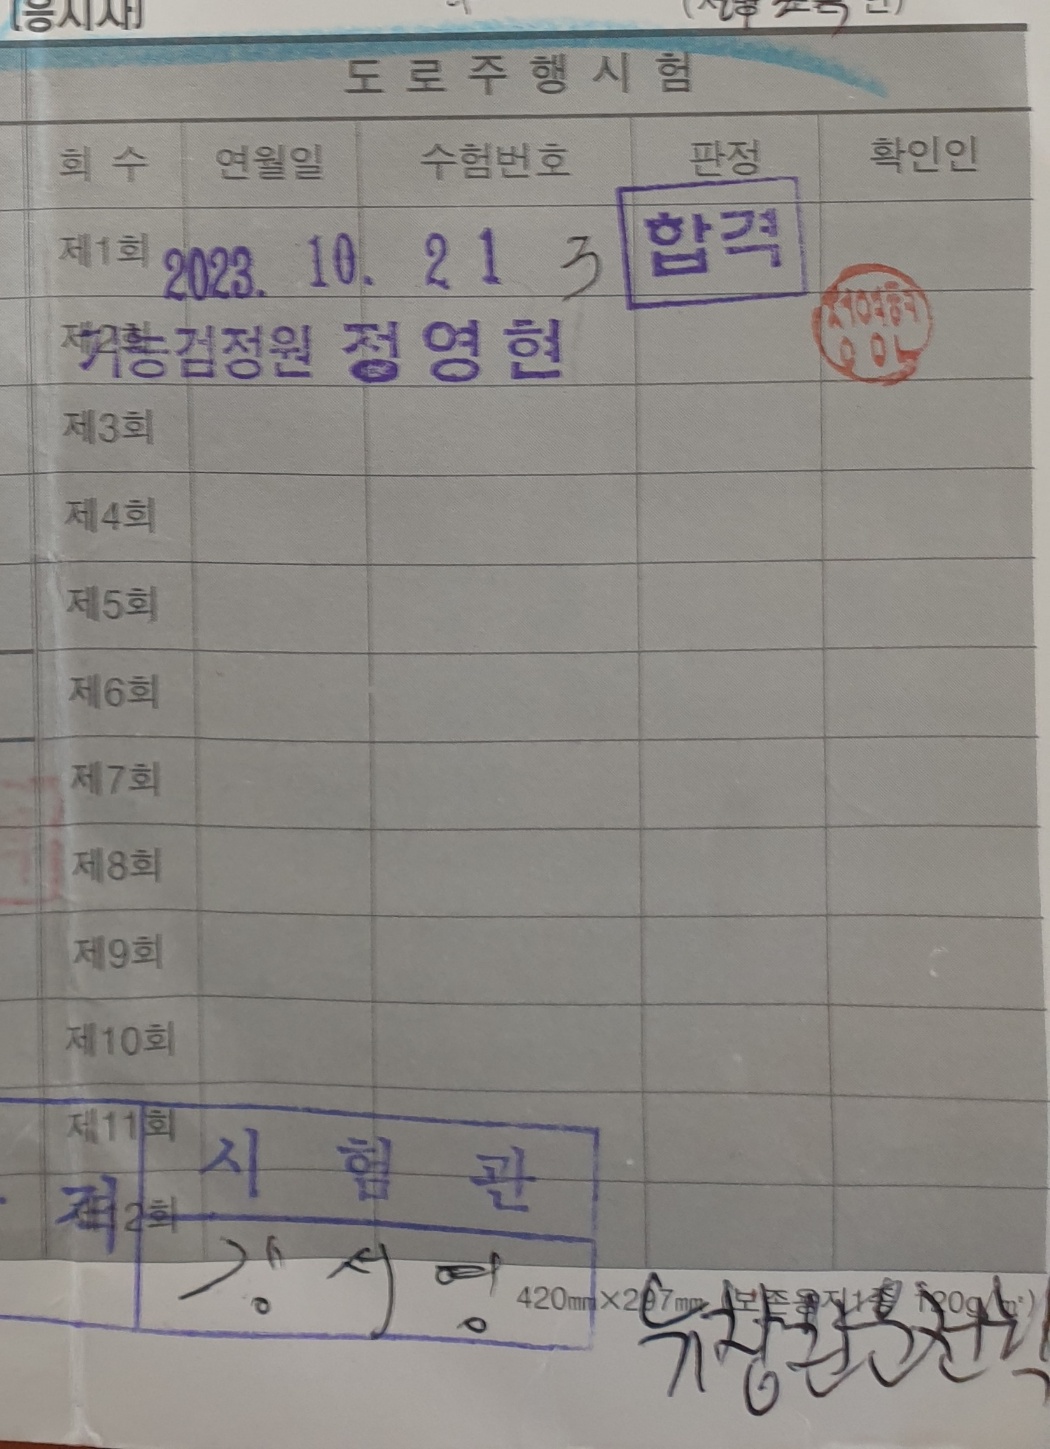 [응시자]
도로주행시험
회 수 연월일 수험번호 판정 확인인
제1회 2023. 10. 21 3 합격
제2회 기능검정원 정영현
제3회
제4회
제5회
제6회
제7회
제8회
제9회
제10회
제11회
시 험 관
격 제12회
강 서 영
420㎜×297㎜ (보존용지1종 120g/㎡)